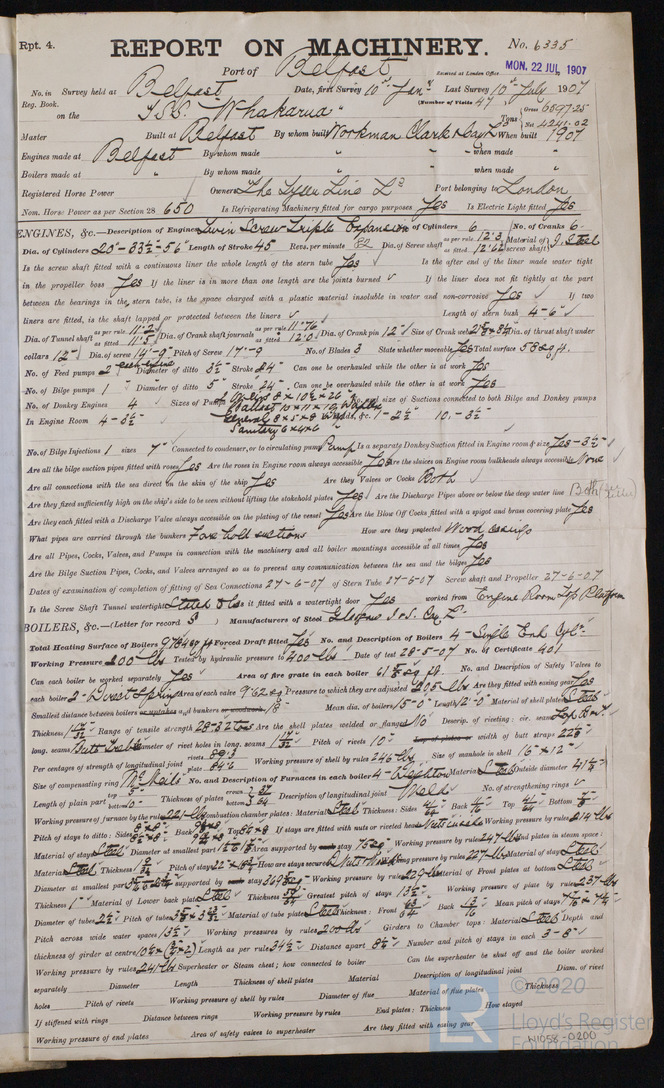 Rpt. 4.
REPORT ON MACHINERY.
No. 6335
Port of Belfast
Received at London Office MON. 22 JUL 1907
No. in Survey held at Belfast Date, first Survey 10th Jany Last Survey 10th July 1907
Reg. Book. (Number of Visits 47
on the TSS. "Whakarua" Tons Gross 6097.25 Net 4241.02
Master Built at Belfast By whom built Workman Clark & Coy Ld When built 1907
Engines made at Belfast By whom made " " when made "
Boilers made at " By whom made " when made "
Registered Horse Power Owners The Tyser Line Ld Port belonging to London
Nom. Horse Power as per Section 28 650 Is Refrigerating Machinery fitted for cargo purposes Yes Is Electric Light fitted Yes
ENGINES, &c.—Description of Engines Twin Screw Triple Expansion No. of Cylinders 6 No. of Cranks 6
Dia. of Cylinders 20"-33½-56" Length of Stroke 45 Revs. per minute 82 Dia. of Screw shaft as per rule 12.3 as fitted 12.62 Material of screw shaft Steel
Is the screw shaft fitted with a continuous liner the whole length of the stern tube Yes Is the after end of the liner made water tight
in the propeller boss Yes If the liner is in more than one length are the joints burned If the liner does not fit tightly at the part
between the bearings in the stern tube, is the space charged with a plastic material insoluble in water and non-corrosive Yes If two
liners are fitted, is the shaft lapped or protected between the liners Length of stern bush 4-6"
Dia. of Tunnel shaft as per rule 11.2 as fitted 11.5 Dia. of Crank shaft journals as per rule 11.76 as fitted 12.0 Dia. of Crank pin 12" Size of Crank webs Dia. of thrust shaft under
collars 12" Dia. of screw 14'-9" Pitch of Screw 17'-9 No. of Blades 3 State whether moveable Yes Total surface 58 sq ft.
No. of Feed pumps 2 each engine Diameter of ditto 3½ Stroke 24" Can one be overhauled while the other is at work Yes
No. of Bilge pumps 1 Diameter of ditto 5" Stroke 24" Can one be overhauled while the other is at work Yes
No. of Donkey Engines 4 Sizes of Pumps 8 x 10½ x 26 No. and size of Suctions connected to both Bilge and Donkey pumps
Ballast 10 x 11 x 10
In Engine Room 4-3½" General 8 x 5 x 8 Holds, &c. 1-2½" 10-3½"
Sanitary 6 x 4 x 6
No. of Bilge Injections 1 sizes 7" Connected to condenser, or to circulating pump Pump Is a separate Donkey Suction fitted in Engine room & size Yes-3½"
Are all the bilge suction pipes fitted with roses Yes Are the roses in Engine room always accessible Yes Are the sluices on Engine room bulkheads always accessible None
Are all connections with the sea direct on the skin of the ship Yes Are they Valves or Cocks Both
Are they fixed sufficiently high on the ship's side to be seen without lifting the stokehold plates Yes Are the Discharge Pipes above or below the deep water line Both
Are they each fitted with a Discharge Valve always accessible on the plating of the vessel Yes Are the Blow Off Cocks fitted with a spigot and brass covering plate Yes
What pipes are carried through the bunkers Fore hold suctions How are they protected Wood casings
Are all Pipes, Cocks, Valves, and Pumps in connection with the machinery and all boiler mountings accessible at all times Yes
Are the Bilge Suction Pipes, Cocks, and Valves arranged so as to prevent any communication between the sea and the bilges Yes
Dates of examination of completion of fitting of Sea Connections 27-6-07 of Stern Tube 27-6-07 Screw shaft and Propeller 27-6-07
Is the Screw Shaft Tunnel watertight Is it fitted with a watertight door Yes worked from Engine Room Top Platform
BOILERS, &c.—(Letter for record S) Manufacturers of Steel Glasgow I & S. Coy Ld
Total Heating Surface of Boilers 9784 sq ft Forced Draft fitted Yes No. and Description of Boilers 4-Single End Cyl.
Working Pressure 200 lbs Tested by hydraulic pressure to 400 lbs Date of test 28-5-07 No. of Certificate 401
Can each boiler be worked separately Yes Area of fire grate in each boiler 61.8 sq ft No. and Description of Safety Valves to
each boiler 2-Direct Spring Area of each valve 9.62 sq Pressure to which they are adjusted 205 lbs Are they fitted with easing gear Yes
Smallest distance between boilers or uptakes and bunkers or woodwork 18" Mean dia. of boilers 15'-0" Length 12'-0" Material of shell plates Steel
Thickness Range of tensile strength 28-32 tons Are the shell plates welded or flanged No Descrip. of riveting: cir. seams Lap
long. seams Butt Diameter of rivet holes in long. seams 1 17/32 Pitch of rivets 10" Lap of plates or width of butt straps 22⅝
Per centages of strength of longitudinal joint rivets 89.3 plate 84.6 Working pressure of shell by rules 246 lbs Size of manhole in shell 16" x 12"
Size of compensating ring McNeils No. and Description of Furnaces in each boiler 4-Deighton Material Steel Outside diameter 41
Length of plain part top bottom Thickness of plates crown 37/64 bottom Description of longitudinal joint Weld No. of strengthening rings
Working pressure of furnace by the rules 221 lbs Combustion chamber plates: Material Steel Thickness: Sides Back Top Bottom
Pitch of stays to ditto: Sides Back Top If stays are fitted with nuts or riveted heads Nuts inside Working pressure by rules 214 lbs
Material of stays Steel Diameter at smallest part Area supported by each stay 75 sq Working pressure by rules 247 lbs End plates in steam space:
Material Steel Thickness Pitch of stays How are stays secured Working pressure by rules 227 lbs Material of stays Steel
Diameter at smallest part Area supported by each stay 369 sq Working pressure by rules 229 lbs Material of Front plates at bottom Steel
Thickness 1" Material of Lower back plate Steel Thickness Greatest pitch of stays 13½ Working pressure of plate by rules 237 lbs
Diameter of tubes 2½ Pitch of tubes Material of tube plates Steel Thickness: Front Back 13/16 Mean pitch of stays
Pitch across wide water spaces 13½ Working pressures by rules 200 lbs Girders to Chamber tops: Material Steel Depth and
thickness of girder at centre Length as per rule 34½ Distance apart 8½ Number and pitch of stays in each 3-8"
Working pressure by rules 241 lbs Superheater or Steam chest; how connected to boiler Can the superheater be shut off and the boiler worked
separately Diameter Length Thickness of shell plates Material Description of longitudinal joint Diam. of rivet
holes Pitch of rivets Working pressure of shell by rules Diameter of flue Material of flue plates Thickness
If stiffened with rings Distance between rings Working pressure by rules End plates: Thickness How stayed
Working pressure of end plates Area of safety valves to superheater Are they fitted with easing gear
© 2020
Lloyd's Register
Foundation
W1058-0200